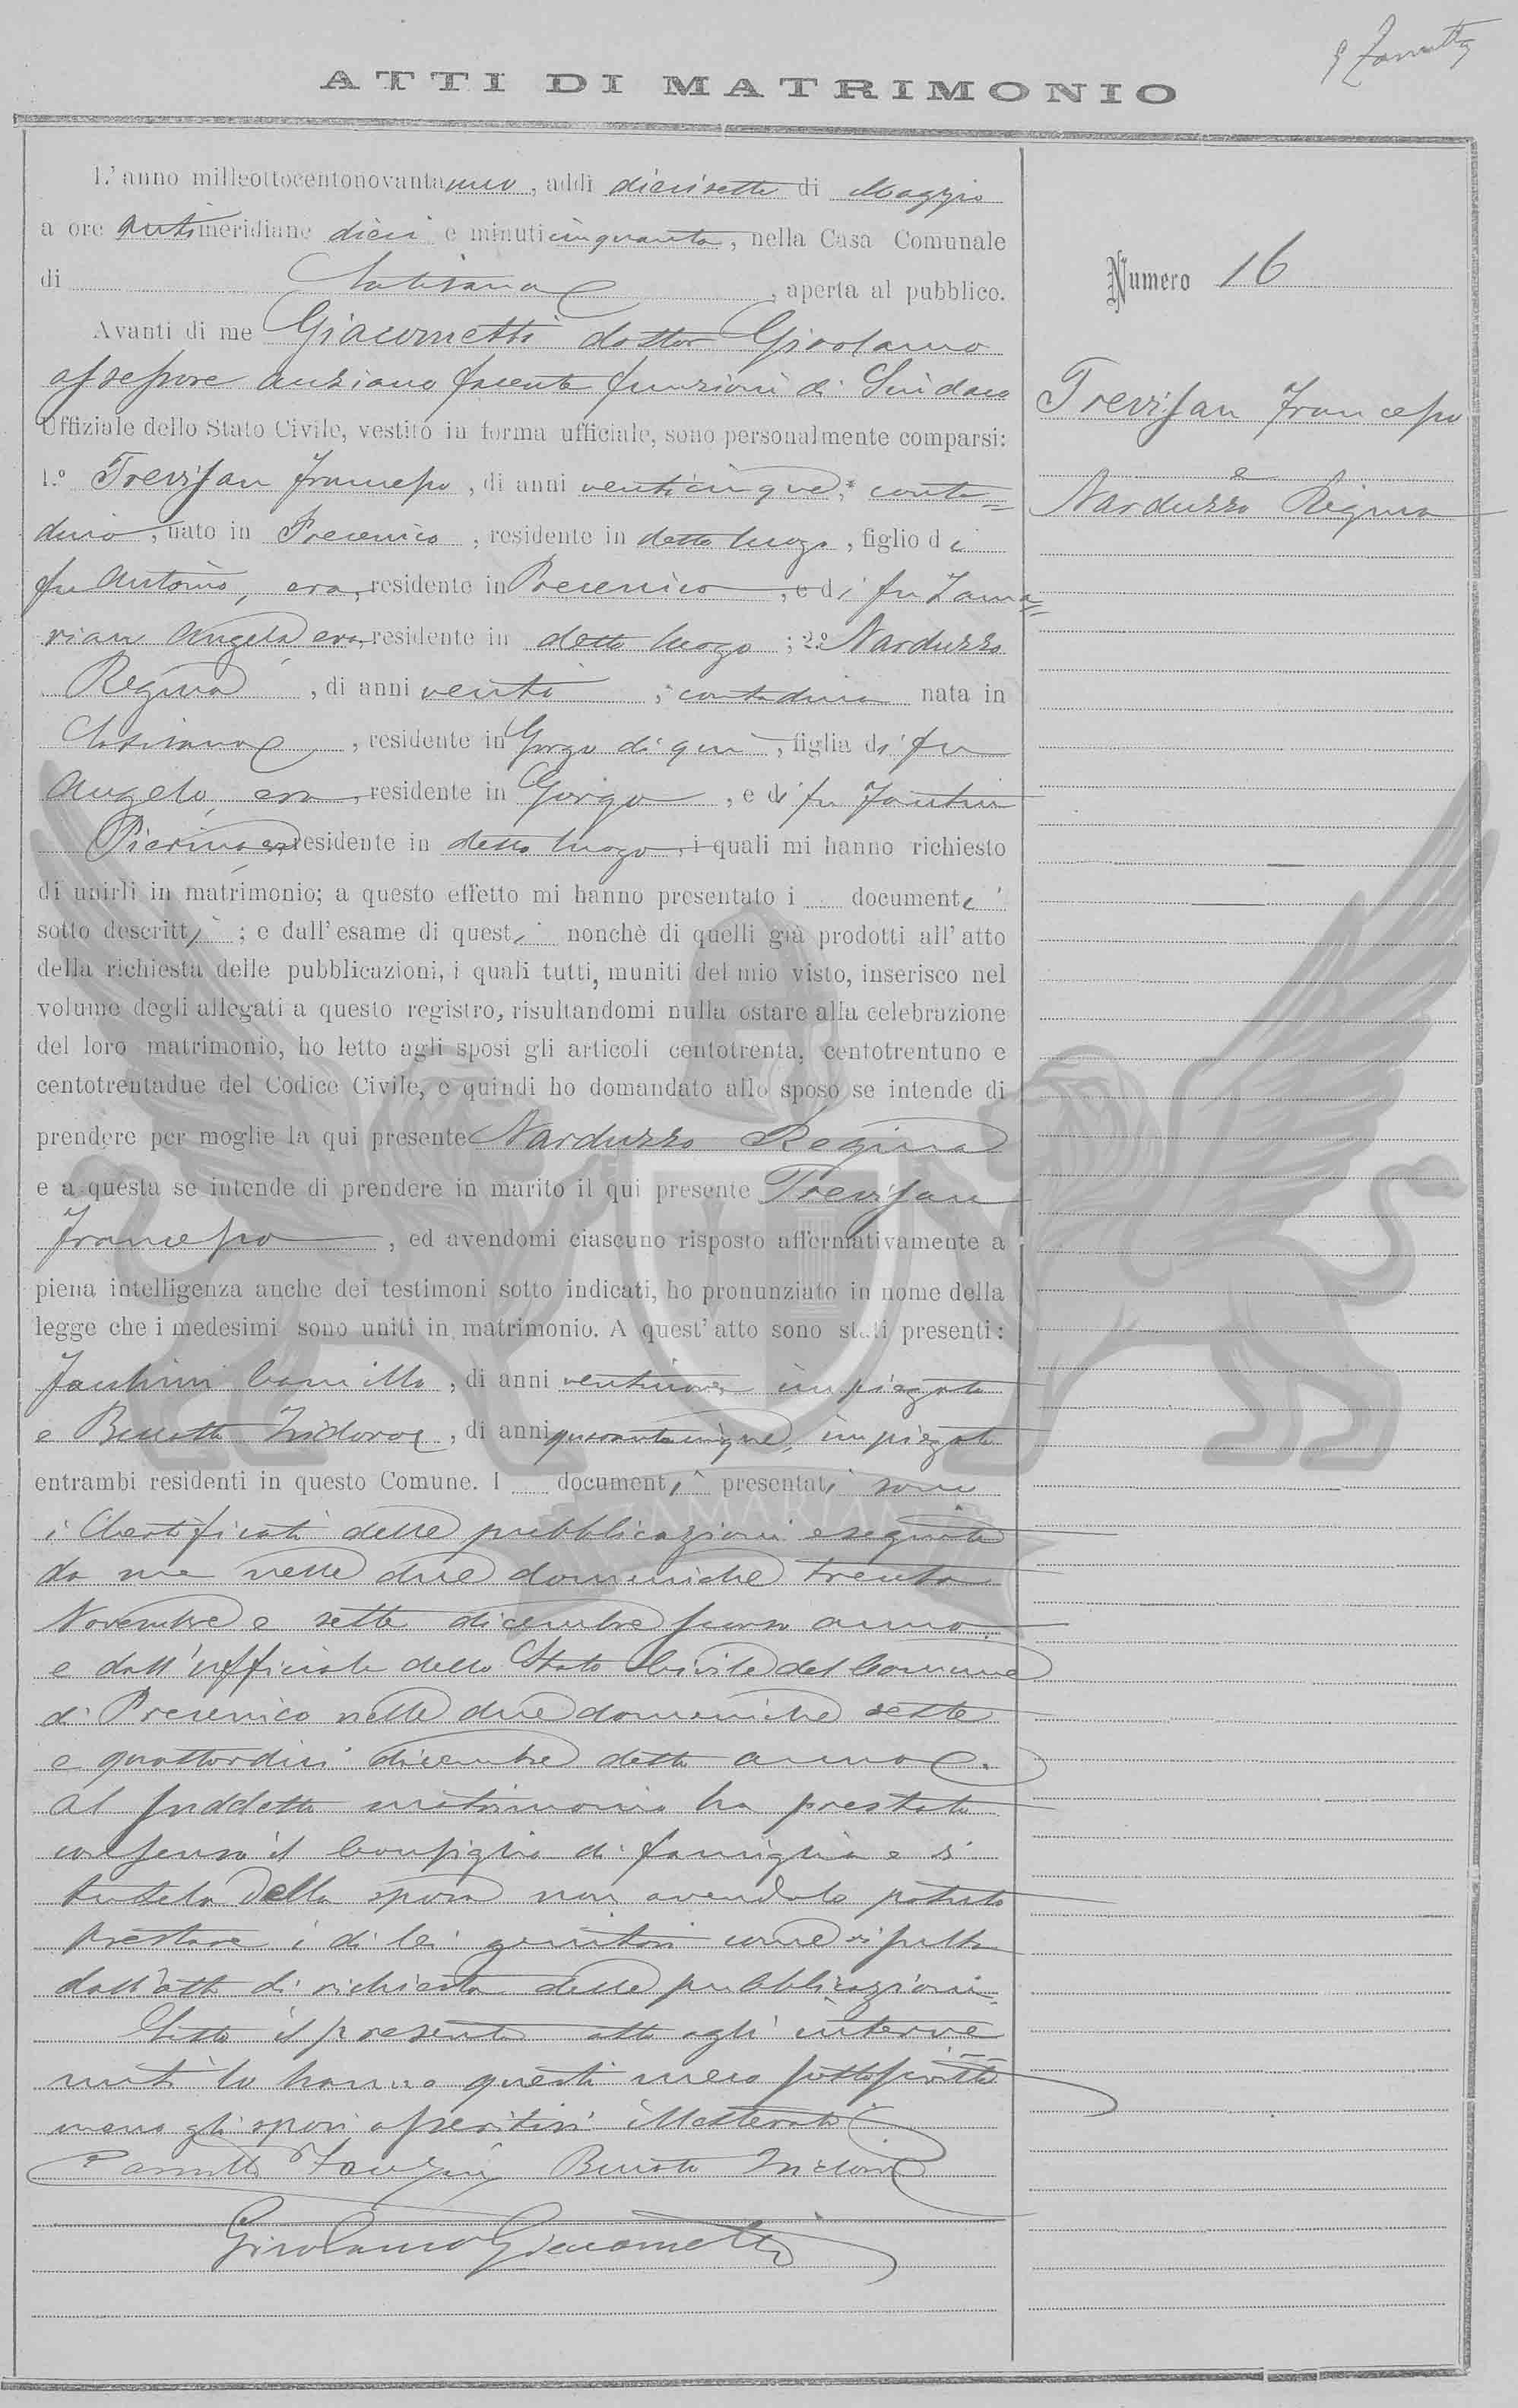 ATTI DI MATRIMONIO
L'anno milleottocentonovantauno, addì diecisette di Maggio
a ore antimeridiane dieci e minuti cinquanta, nella Casa Comunale
di Latisana, aperta al pubblico.
Avanti di me Giacometti dottor Girolamo
assessore anziano facente funzioni di Sindaco
Uffiziale dello Stato Civile, vestito in forma ufficiale, sono personalmente comparsi:
1.º Trevisan Francesco, di anni venticinque, conta=
dino, nato in Precenico, residente in detto luogo, figlio di
fu Antonio, era, residente in Precenico, e di fu Zama=
rian Angela era residente in detto luogo; 2.º Narduzzo
Regina, di anni venti, contadina nata in
Latisana, residente in Gorgo di qui, figlia di fu
Angelo, era, residente in Gorgo, e di fu Fantin
Pierina era residente in detto luogo, i quali mi hanno richiesto
di unirli in matrimonio; a questo effetto mi hanno presentato i documenti
sotto descritti; e dall'esame di questi nonchè di quelli già prodotti all'atto
della richiesta delle pubblicazioni, i quali tutti, muniti del mio visto, inserisco nel
volume degli allegati a questo registro, risultandomi nulla ostare alla celebrazione
del loro matrimonio, ho letto agli sposi gli articoli centotrenta, centotrentuno e
centotrentadue del Codice Civile, e quindi ho domandato allo sposo se intende di
prendere per moglie la qui presente Narduzzo Regina
e a questa se intende di prendere in marito il qui presente Trevisan
Francesco, ed avendomi ciascuno risposto affermativamente a
piena intelligenza anche dei testimoni sotto indicati, ho pronunziato in nome della
legge che i medesimi sono uniti in matrimonio. A quest'atto sono stati presenti:
Camillo, di anni ventinove impiegato
e Isidoro, di anni quarantacinque, impiegato
entrambi residenti in questo Comune. I documenti presentati sono
i Certificati delle pubblicazioni eseguite
da me nelle due domeniche trenta
Novembre e sette dicembre scorso anno
e dall'ufficiale dello Stato Civile del Comune
di Precenico nelle due domeniche sette
e quattordici dicembre detto anno.
Al suddetto matrimonio ha prestato
consenso il Consiglio di famiglia e di
tutela della sposa non avendolo potuto
prestare i di lei genitori come risulta
dall'atto di richiesta delle pubblicazioni.
Letto il presente atto agli interve=
nuti lo hanno questi meco sottoscritto
meno gli sposi asseritisi illetterati.
Isidoro
Girolamo Giacometti
Numero 16
Trevisan Francesco
e
Narduzzo Regina